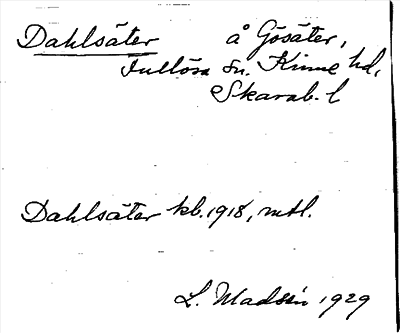 Dahlsäter å Gösäter,
Fullösa sn. Kinne hd,
Skarab. l
Dahlsäter kb. 1918, mtl.
L. Madsén 1929